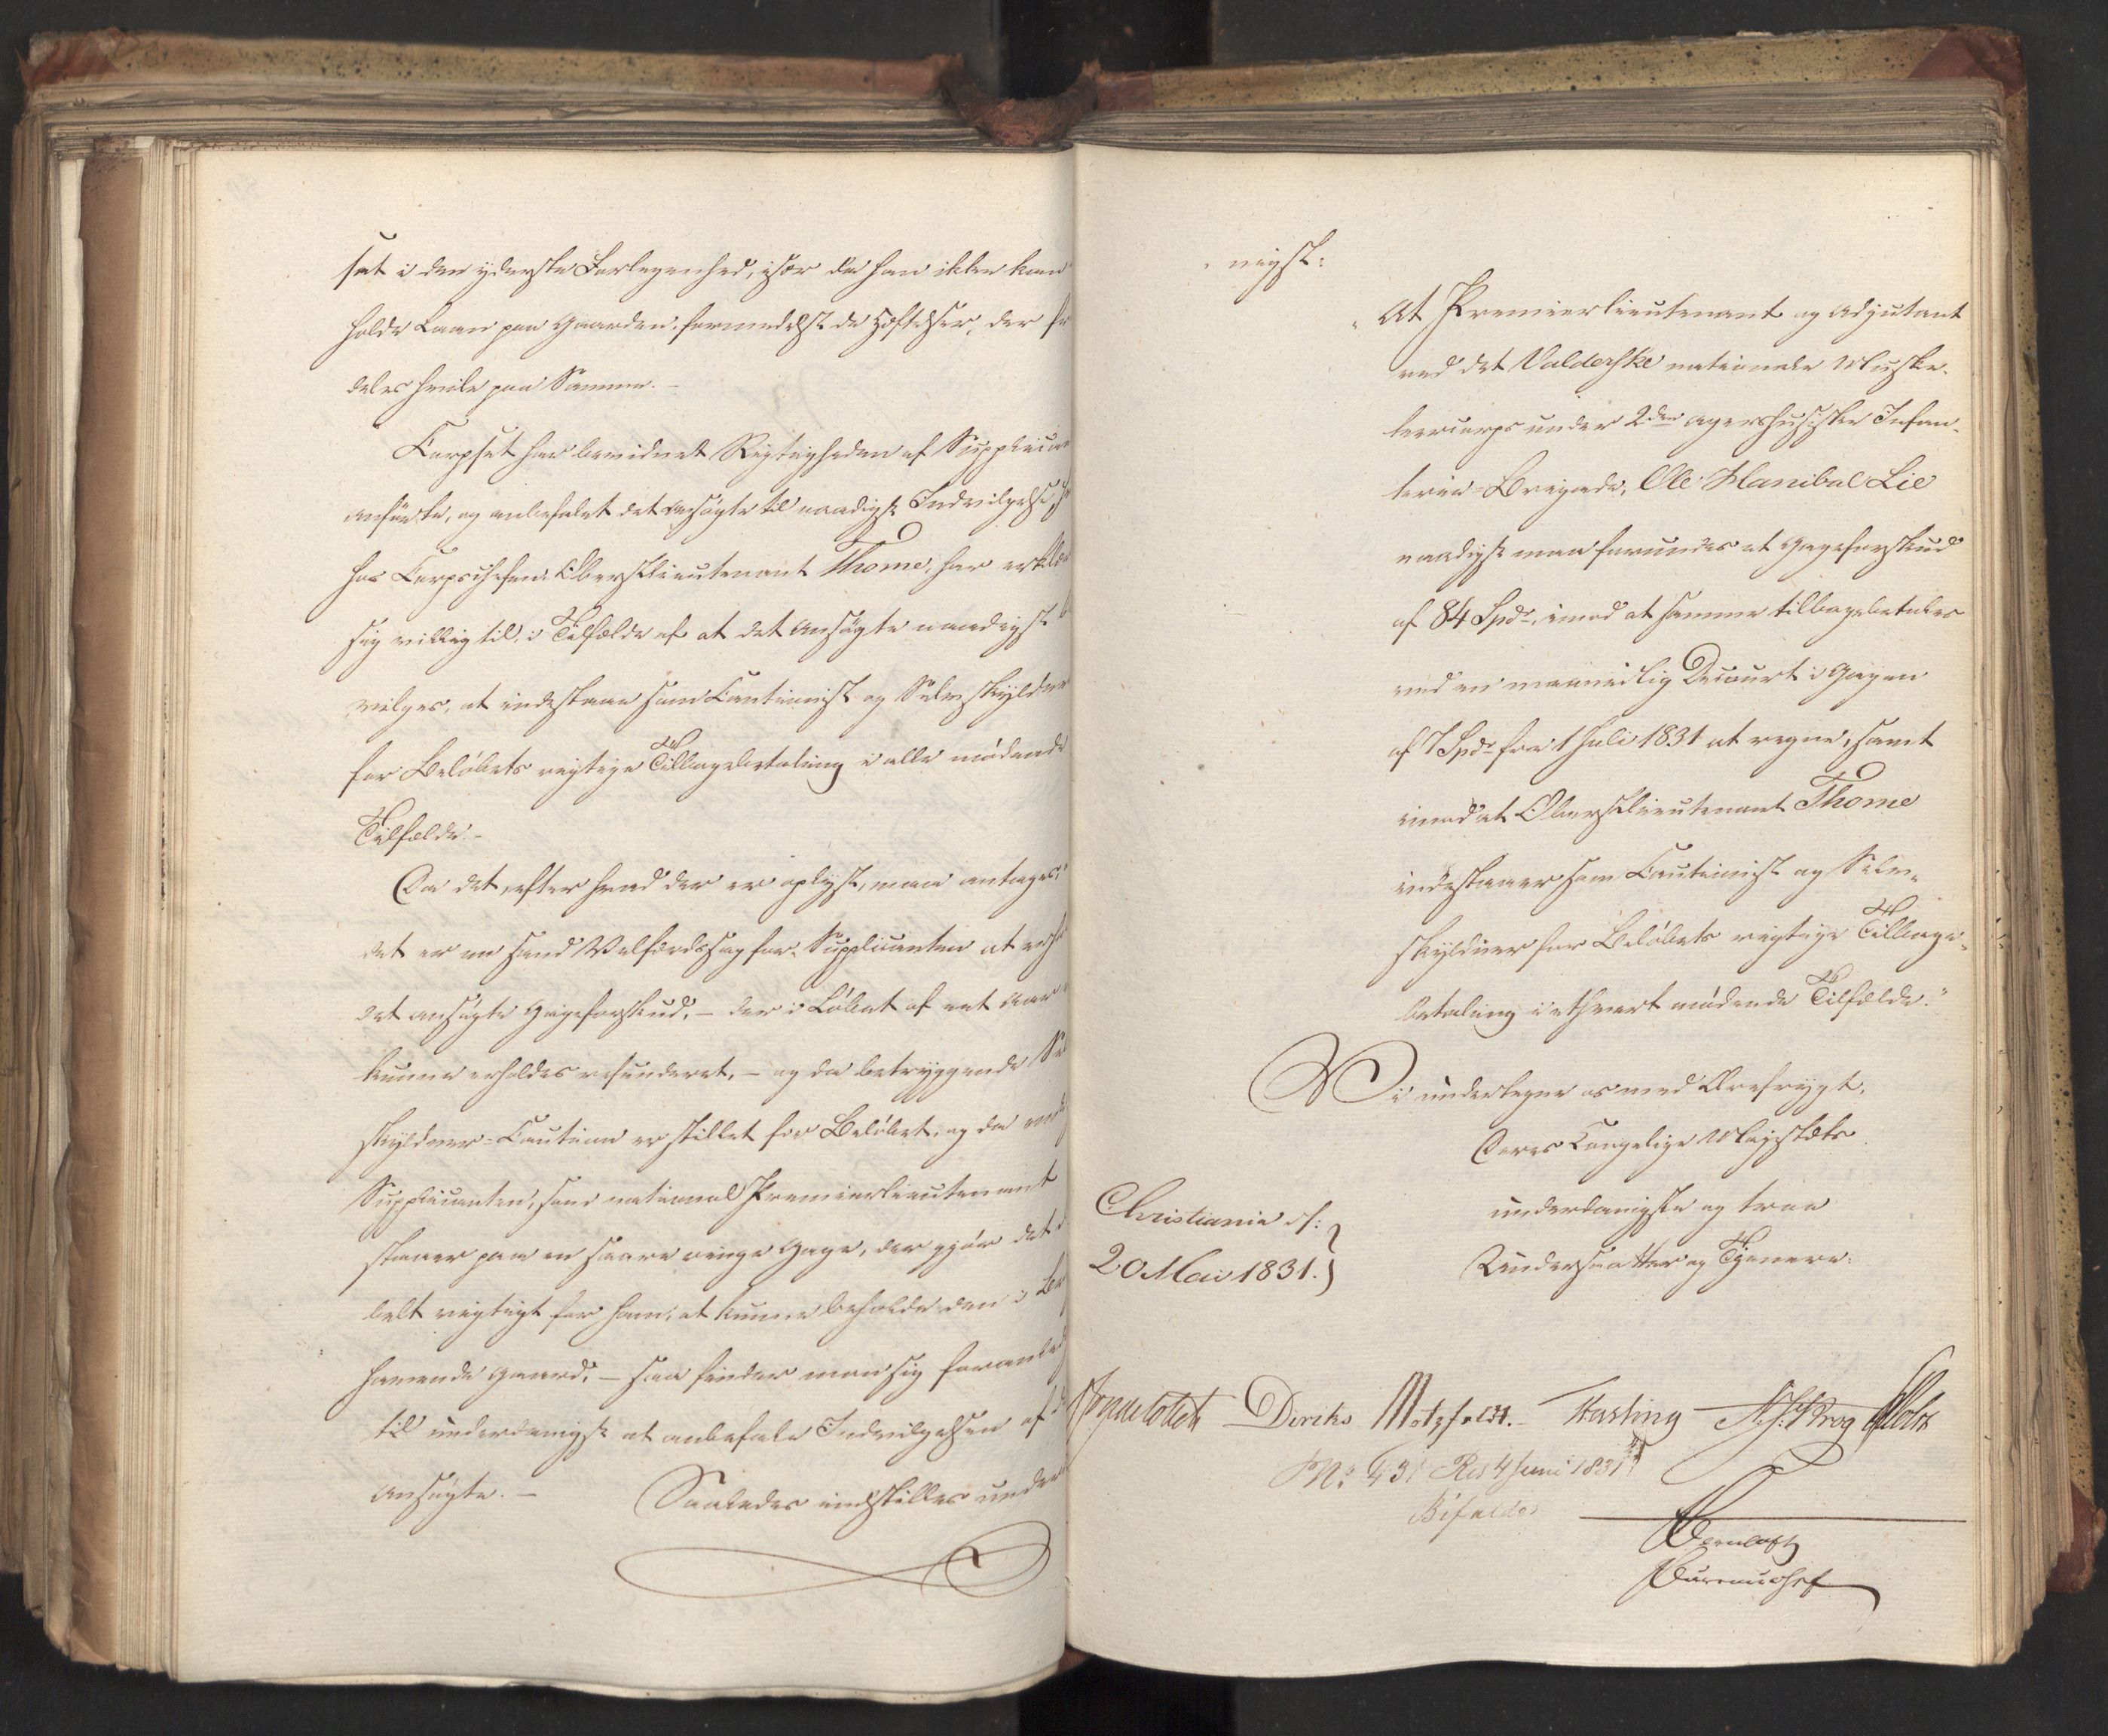 sat i den yderste Forlegenhed, især da han ikke kan
holde Laan paa Gaarden, formedelst de Heftelser, der
deles hvile paa Samme. –
Corpset har bevidnet Rigtigheden af
anførte, og anbefalet det Ansøgte til naadigst Indvilgelse,
hos Corpschefen, Oberstlieutenant Thome, har
sig villig til, i Tilfælde af at det Ansøgte naadigst
vilges, at indestaae som Cautionist og Selvskyldner
for Beløbets rigtige Tilbagebetaling i alle mødende
Tilfælde. –
Da det, efter hvad der er oplyst, maa antages,
det er en sand Velfærdssag for Supplicanten at
det ansøgte Gageforskud, – der i Løbet af eet Aar
kunne erholdes refunderet, – og da betryggende
skyldner-Caution er stillet for Beløbet, og da
Supplicanten, som national Premierlieutenant
staaer paa en saare ringe Gage, der gjør det
belt vigtigt for ham, at kunne beholde den i
havende Gaard, – saa finder man sig
til underdanigst at anbefale Indvilgelsen af
Ansøgte. –
Saaledes indstilles
nigst:
"At Premierlieutenant og Adjutant
ved det Valderske nationale Muske-
teercorps under 2den Agershusiske Infan-
terie-Brigade, Ole Hanibal Lie
naadigst maa forundes et Gageforskud
af 84 Spdr, imod at samme tilbagebetales
ved en maanedlig Decourt i Gagen
af 7 Spdr fra 1 Juli 1831 at regne, samt
imod at Oberstlieutenant Thome
indestaaer som Cautionist og Selv-
skyldner for Beløbets rigtige Tilbage-
betaling i ethvert mødende Tilfælde."
Vi undertegne os med Ærefrygt,
Deres Kongelige Majestæts
underdanigste og troe
Undersaatter og Tjenere.
Christiania d:
20 Mai 1831.
Collett Diriks Motzfeldt. Fasting Krog Holst
No 431 Res 4 Juni 1831
Bifaldes
Bureauchef